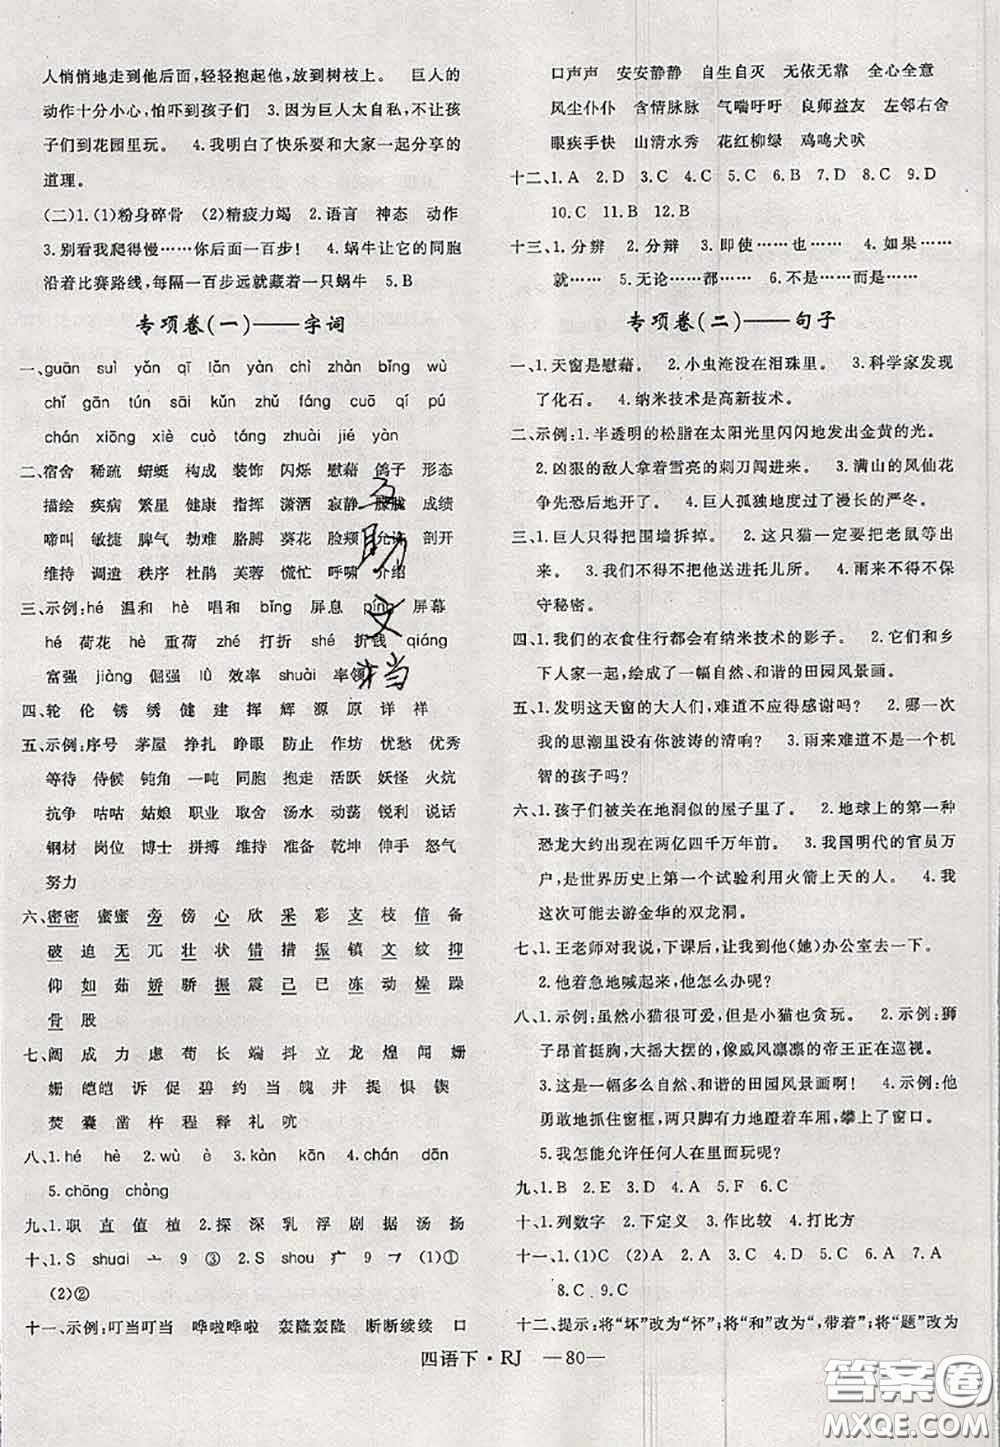 人悄悄地走到他后面,轻轻抱起他,放到树枝上。 巨人的
动作十分小心,怕吓到孩子们 3.因为巨人太自私,不让孩
子们到花园里玩。 4.我明白了快乐要和大家一起分享的
道理。
(二)1.(1)粉身碎骨 (2)精疲力竭 2.语言 神态 动作
3.别看我爬得慢……你后面一百步! 4.蜗牛让它的同胞
沿着比赛路线,每隔一百步远就藏着一只蜗牛 5.B
专项卷(一)——字词
一、guān suì yǎn qī lǎn yàn chì zhàn bǐng wù
chǐ gān tún sāi kǔn zhuó fáng cuō qí pú
chán xiōng xiè cuò tāng zhuài jié yàn
二、宿舍 稀疏 蜻蜓 构成 装饰 闪烁 慰藉 鸽子 形态
描绘 疾病 繁星 健康 指挥 潇洒 寂静 朦胧 成绩
啼叫 敏捷 脾气 劲难 胳膊 葵花 脸颊 允许 剖开
维持 调遣 秩序 杜鹃 芙蓉 慌忙 呼啸 介绍
三、示例:hé 温和 hè 唱和 bǐng 屏息 píng 屏幕
hé 荷花 hè 重荷 zhé 打折 shé 折钱 qiáng
富强 jiàng 倔强 lǜ 效率 shuài 率领
四、轮 伦 锈 绣 健 建 挥 辉 源 原 详 祥
五、示例:序号 茅屋 挣扎 睁眼 防止 作坊 忧愁 优秀
等待 侍候 钝角 一吨 同胞 抱走 活跃 妖怪 火炕
抗争 咕咕 姑娘 职业 取舍 汤水 动荡 锐利 说话
钢材 岗位 博士 拼搏 维持 准备 乾坤 伸手 怒气
努力
六、密密 蜜蜜 旁 傍 心 欣 采 彩 支 枝 倍 备
破 迫 无 兀 壮 状 错 措 振 镇 文 纹 抑
仰 如 茹 娇 骄 振 震 己 已 冻 动 燥 躁
骨 股
七、阔 成 力 虑 苟 长 端 抖 立 龙 煌 闻 姗
姗 皑皑 诉 促 碧 约 当 魄 井 提 惧 锲
焚 囊 凿 杵 程 释 礼 吭
八、1.hé hè 2.wù è 3.kàn kān 4.chán dān
5.chōng chòng
九、1.职 直 值 植 2.探 深 乳 浮 剧 据 汤 扬
十、1.S shuai 亠 9 ③ 2.S shou 疒 9 乛 (1)①
(2)②
十一、示例:叮当叮当 哗啦哗啦 轰隆轰隆 断断续续 口
口声声 安安静静 自生自灭 无依无靠 全心全意
风尘仆仆 含情脉脉 气喘吁吁 良师益友 左邻右舍
眼疾手快 山清水秀 花红柳绿 鸡鸣犬吠
十二、1.A 2.D 3.C 4.C 5.C 6.B 7.D 8.C 9.D
10.C 11.B 12.B
十三、1.分辨 2.分辩 3.即使……也…… 4.如果……
就…… 5.无论……都…… 6.不是……而是……
专项卷(二)——句子
一、1.天窗是慰藉。 2.小虫淹没在泪珠里。 3.科学家发现
了化石。 4.纳米技术是高新技术。
二、示例:1.半透明的松脂在太阳光里闪闪地发出金黄的光。
2.凶狠的敌人拿着雪亮的刺刀闯进来。 3.满山的凤仙花
争先恐后地开了。 4.巨人孤独地度过了漫长的严冬。
三、1.巨人只得把围墙拆掉。 2.这只猫一定要把老鼠等出
来。 3.我们不得不把他送进托儿所。 4.雨来不得不保
守秘密。
四、1.我们的衣食住行都会有纳米技术的影子。 2.它们和乡
下人家一起,绘成了一幅自然、和谐的田园风景画。
五、1.发明这天窗的大人们,难道不应得感谢吗? 2.哪一次
我的思潮里没有你波涛的清响? 3.雨来难道不是一个机
智的孩子吗?
六、1.孩子们被关在地洞似的屋子里了。 2.地球上的第一种
恐龙大约出现在两亿四千万年前。 3.我国明代的官员万
户,是世界历史上第一个试验利用火箭上天的人。 4.我
这次可能去游金华的双龙洞。
七、1.王老师对我说,下课后,让我到他(她)办公室去一下。
2.他着急地喊起来,他怎么办呢?
八、1.示例:虽然小猫很可爱,但是小猫也贪玩。 2.示例:狮
子昂首挺胸,大摇大摆的,像威风凛凛的帝王正在巡视。
3.这是一幅多么自然、和谐的田园风景画啊! 4.示例:他
勇敢地抓住窗框,两只脚有力地蹬着车厢,攀上了窗口。
5.我怎能允许任何人在里面玩呢?
九、1.B 2.E 3.D 4.A 5.F 6.C
十、1.列数字 2.下定义 3.作比较 4.打比方
十一、1.(1)C (2)A 2.A 3.A 4.B 5.C 6.A 7.A
8.C 9.C
十二、提示:将“坏”改为“怀”;将“和”改为“,带着”;将“题”改为
四语下·RJ —80—
互
助
文
档
答案圈
MXQE.COM